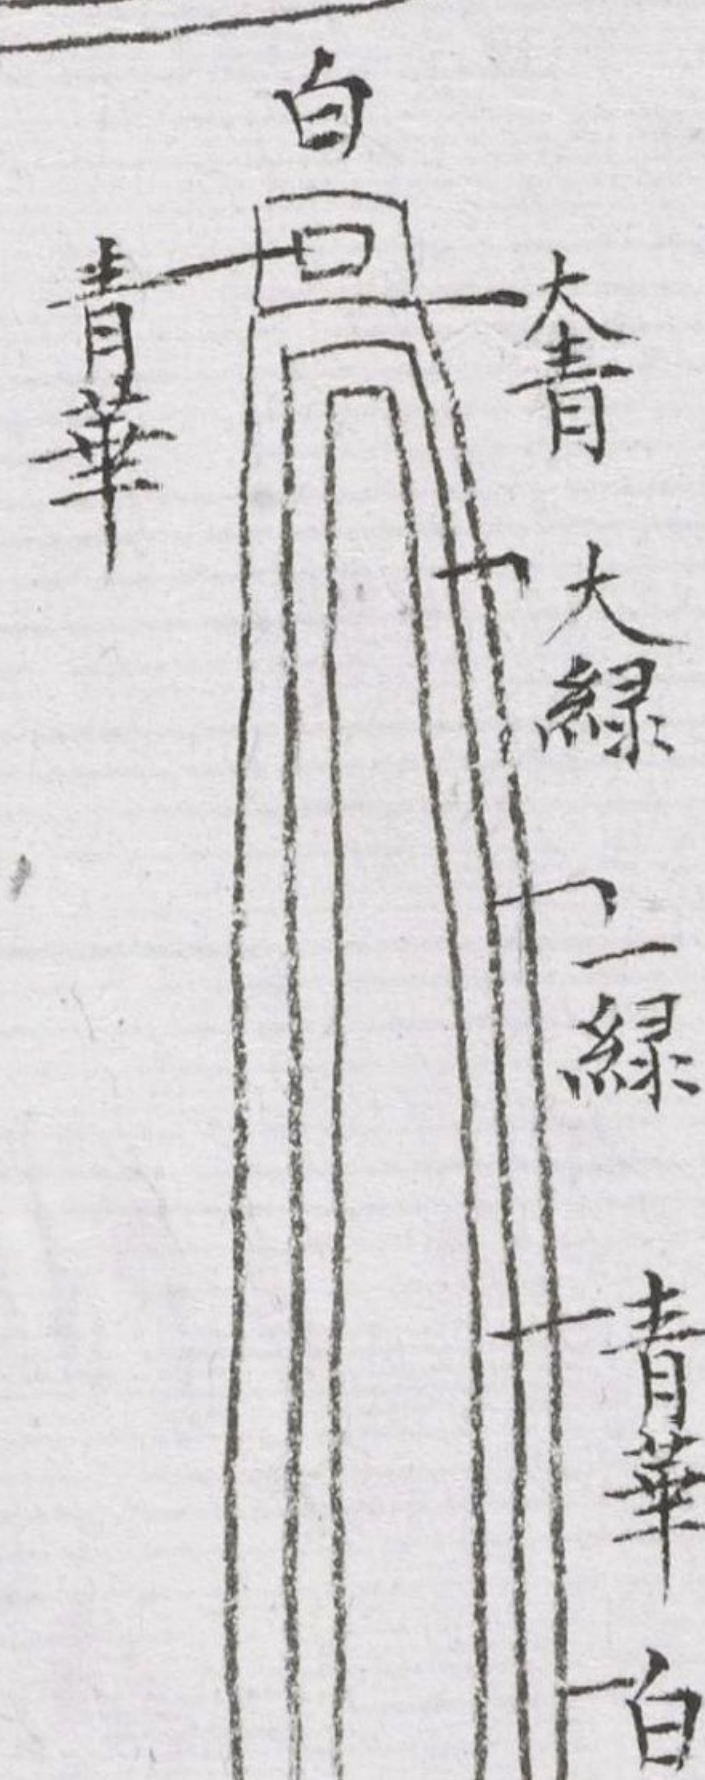 白
青華
大青
大緑
一緑
青華
白